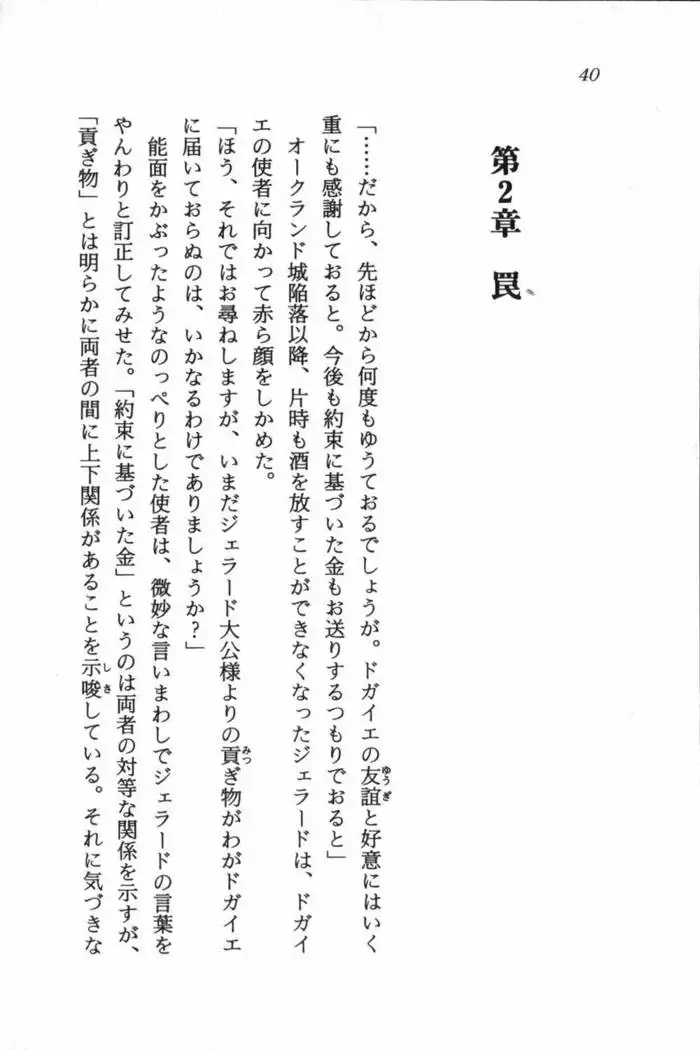 40
第2章 罠
「……だから、先ほどから何度もゆうておるでしょうが。ドガイエの友誼と好意にはいく
重にも感謝しておると。今後も約束に基づいた金もお送りするつもりでおると」
オークランド城陥落以降、片時も酒を放すことができなくなったジェラードは、ドガイ
エの使者に向かって赤ら顔をしかめた。
「ほう、それではお尋ねしますが、いまだジェラード大公様よりの貢ぎ物がわがドガイエ
に届いておらぬのは、いかなるわけでありましょうか?」
能面をかぶったようなのっぺりとした使者は、微妙な言いまわしでジェラードの言葉を
やんわりと訂正してみせた。「約束に基づいた金」というのは両者の対等な関係を示すが、
「貢ぎ物」とは明らかに両者の間に上下関係があることを示唆している。それに気づきな
ゆうぎ
みつ
しさ